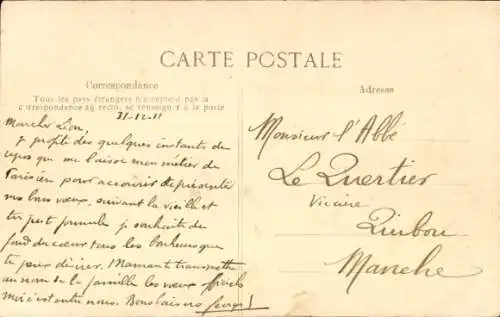 CARTE POSTALE
Correspondance
Tous les pays étrangers n'acceptent pas la
correspondance au recto, se renseigner à la poste
Adresse
31-12-11
Mon cher Léon,
je profite des quelques instants de
repos que me laisse mon métier de
Parisien pour accourir te présenter
nos bons vœux, suivant la vieille et
formule je souhaite du
fond du cœur tous les bonheurs que
tu peux désirer. Maman transmettra
au nom de la famille les vœux officiels
nous. Bons baisers Georges
Monsieur l'Abbé
Le Quertier
Vicaire
Quibou
Manche